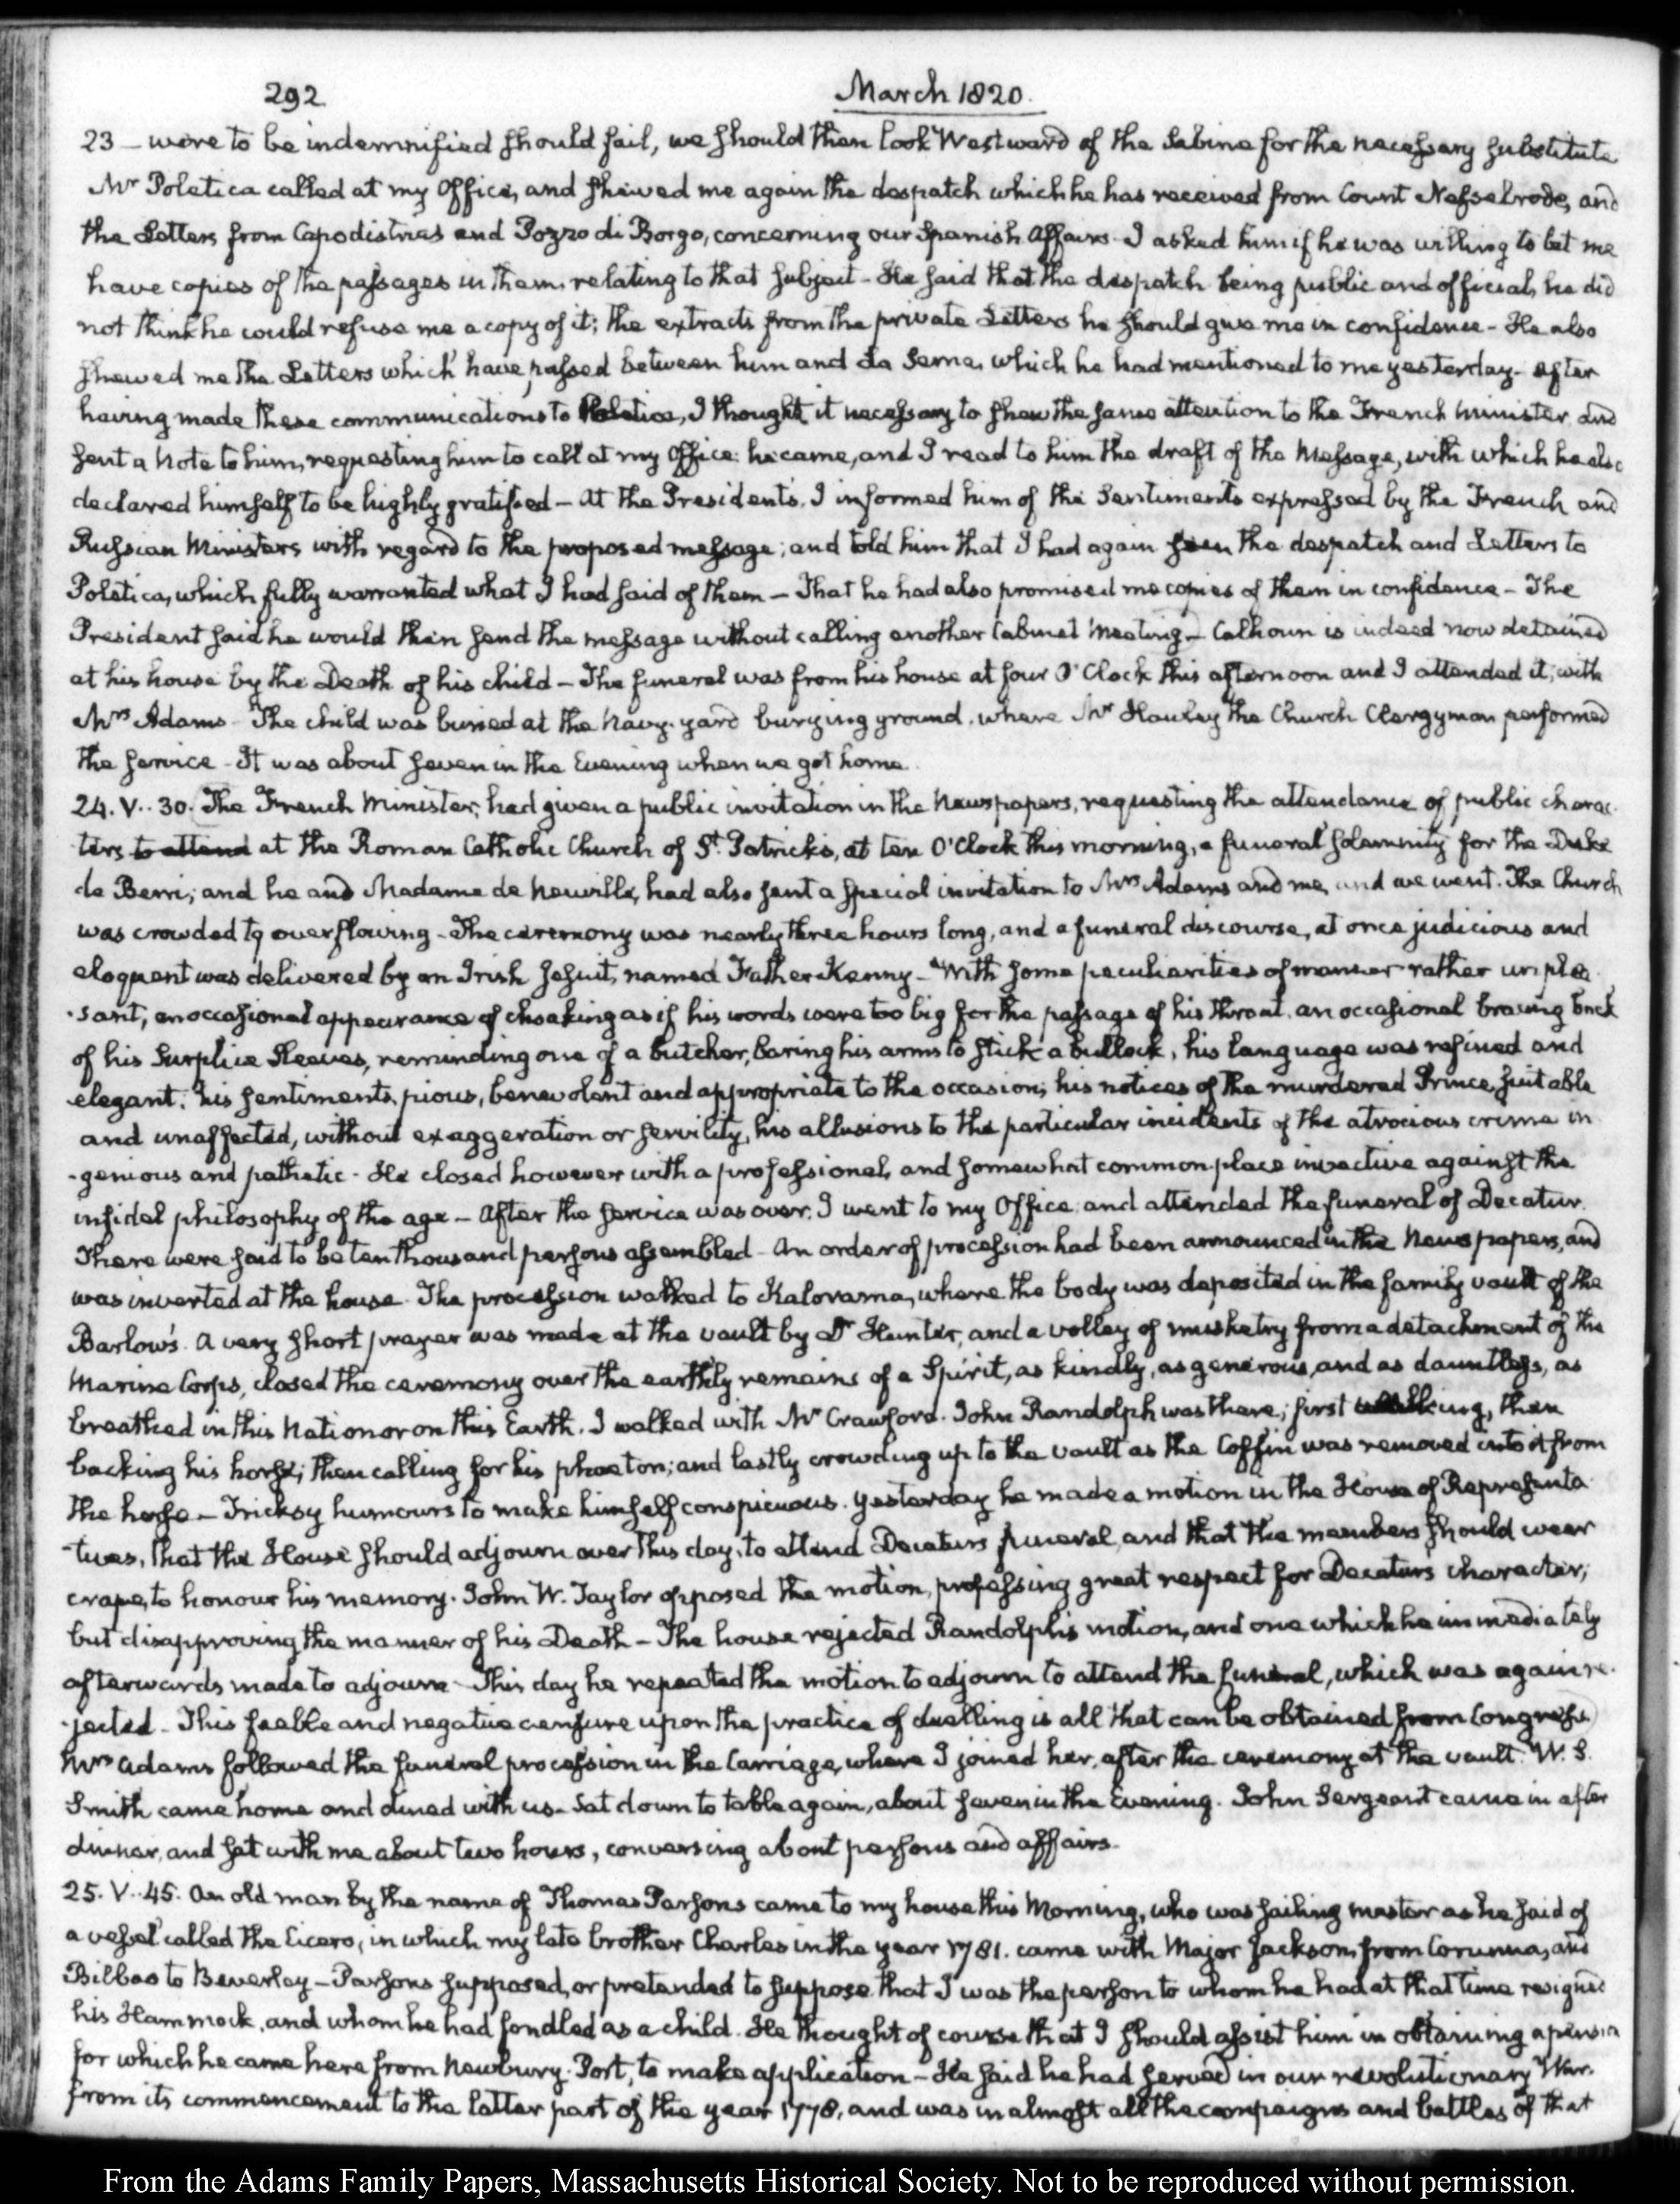 292
March 1820.
23 — were to be indemnified should fail, we should then look Westward of the Sabine for the necessary substitute
Mr Poletica called at my Office, and shewed me again the despatch which he has received from Count Nesselrode, and
the Letters from Capodistrias and Pozzo di Borgo, concerning our Spanish Affairs. I asked him if he was willing to let me
have copies of the passages in them, relating to that subject - He said that the despatch being public and official, he did
not think he could refuse me a copy of it; the extracts from the private Letters he should give me in confidence - He also
shewed me the Letters which have passed between him and La Serna, which he had mentioned to me yesterday - After
having made these communications to Poletica, I thought it necessary to shew the same attention to the French Minister, and
sent a Note to him, requesting him to call at my Office: he came, and I read to him the draft of the Message, with which he also
declared himself to be highly gratified - At the President's, I informed him of the Sentiments expressed by the French and
Russian Ministers with regard to the proposed message; and told him that I had again seen the despatch and Letters to
Poletica, which fully warranted what I had said of them - That he had also promised me copies of them in confidence - The
President said he would then send the message without calling another Cabinet Meeting - Calhoun is indeed now detained
at his house by the Death of his child - The funeral was from his house at four O'Clock this afternoon and I attended it, with
Mrs Adams - The child was buried at the Navy-yard burying ground, where Mr Hawley the Church Clergyman performed
the service - It was about seven in the Evening when we got home.
24. V..30. The French Minister, had given a public invitation in the Newspapers, requesting the attendance of public charac-
ters to attend at the Roman Catholic Church of St. Patricks, at ten O'Clock this morning, a funeral solemnity for the Duke
de Berri; and he and Madame de Neuville, had also sent a special invitation to Mrs Adams and me, and we went. The Church
was crowded to overflowing - The ceremony was nearly three hours long, and a funeral discourse, at once judicious and
eloquent was delivered by an Irish Jesuit, named Father Kenny - With some peculiarities of manner rather unplea-
-sant, an occasional appearance of choaking as if his words were too big for the passage of his throat, an occasional braving back
of his Surplice Sleeves, reminding one of a butcher, baring his arms to stick a bullock, his language was refined and
elegant; his sentiments, pious, benevolent and appropriate to the occasion; his notices of the murdered Prince, suitable
and unaffected, without exaggeration or servility, his allusions to the particular incidents of the atrocious crime in
-genious and pathetic - He closed however with a professional, and somewhat common-place invective against the
infidel philosophy of the age - After the service was over, I went to my Office, and attended the funeral of Decatur.
There were said to be ten thousand persons assembled - An order of procession had been announced in the Newspapers, and
was inverted at the house. The procession walked to Kalorama, where the body was deposited in the family vault of the
Barlow's. A very short prayer was made at the vault by Dr Hunter, and a volley of musketry from a detachment of the
Marine Corps, closed the ceremony over the earthly remains of a Spirit, as kindly, as generous, and as dauntless, as
breathed in this Nation or on this Earth. I walked with Mr Crawford. John Randolph was there; first walking, then
backing his horse; then calling for his phaeton; and lastly crowding up to the vault as the Coffin was removed into it from
the hearse - Tricksy humours to make himself conspicuous. Yesterday he made a motion in the House of Representa-
-tives, that the House should adjourn over this day, to attend Decatur's funeral, and that the members should wear
crape, to honour his memory. John W. Taylor opposed the motion, professing great respect for Decatur's character;
but disapproving the manner of his Death - The house rejected Randolph's motion, and one which he immediately
afterwards made to adjourn - This day he repeated the motion to adjourn to attend the funeral, which was again re-
-jected - This feeble and negative censure upon the practice of duelling is all that can be obtained from Congress.
Mrs Adams followed the funeral procession in the Carriage, where I joined her, after the ceremony at the vault. W. S.
Smith came home and dined with us - Sat down to table again, about seven in the Evening. John Sergeant came in after
dinner, and sat with me about two hours, conversing about persons and affairs.
25. V..45. An old man by the name of Thomas Parsons came to my house this Morning, who was sailing master as he said of
a vessel called the Cicero, in which my late brother Charles in the year 1781. came with Major Jackson, from Corunna, and
Bilbao to Beverley - Parsons supposed, or pretended to suppose that I was the person to whom he had at that time resigned
his Hammock, and whom he had fondled as a child. He thought of course that I should assist him in obtaining a pension
for which he came here from Newbury-Port, to make application - He said he had served in our revolutionary War.
from its commencement to the latter part of the year 1778, and was in almost all the campaigns and battles of that
From the Adams Family Papers, Massachusetts Historical Society. Not to be reproduced without permission.